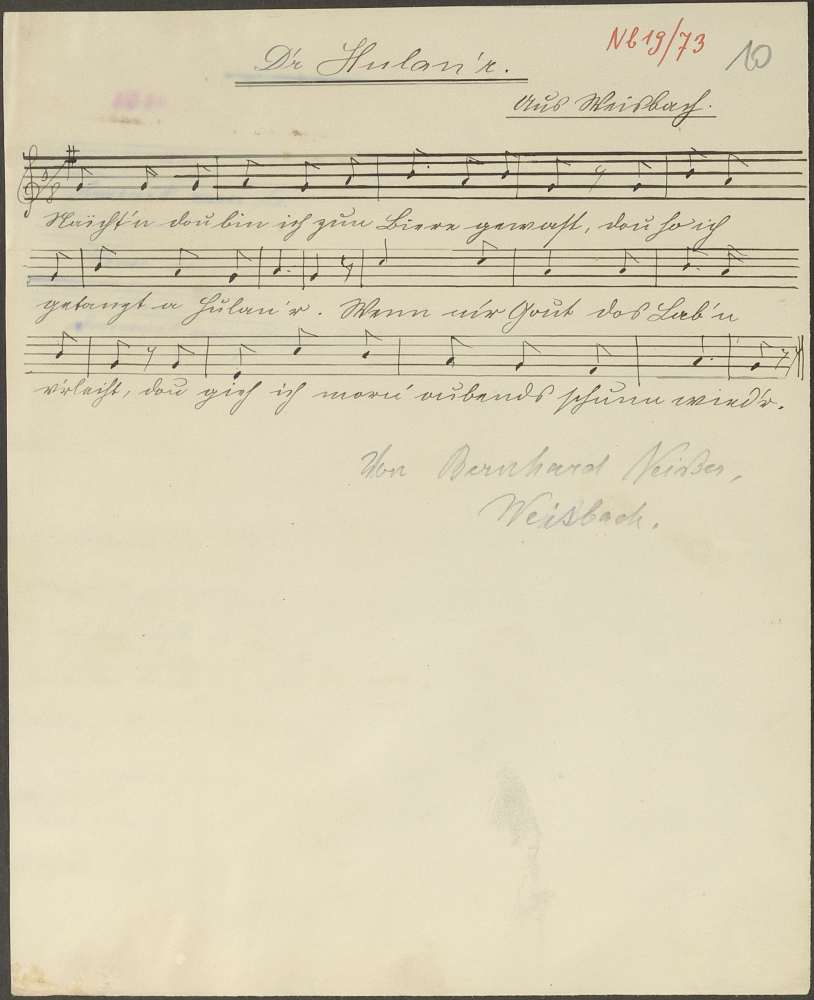 Nb 19/73
10
D'r Hulan'r.
Aus Weisbach.
Naicht'n dou bin ich zun Biere gewast, dou ho ich
getanzt a Hulan'r. Wenn m'r Gout dos Lab'n
v'rleiht, dou gieh ich morn oubends schunn wied'r.
Von Bernhard
Weisbach.